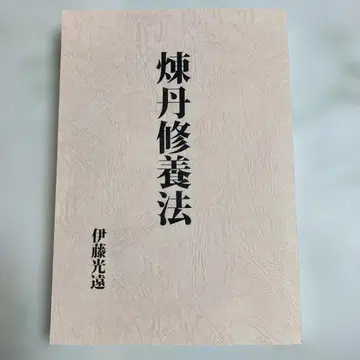 煉丹修養法
伊藤光遠